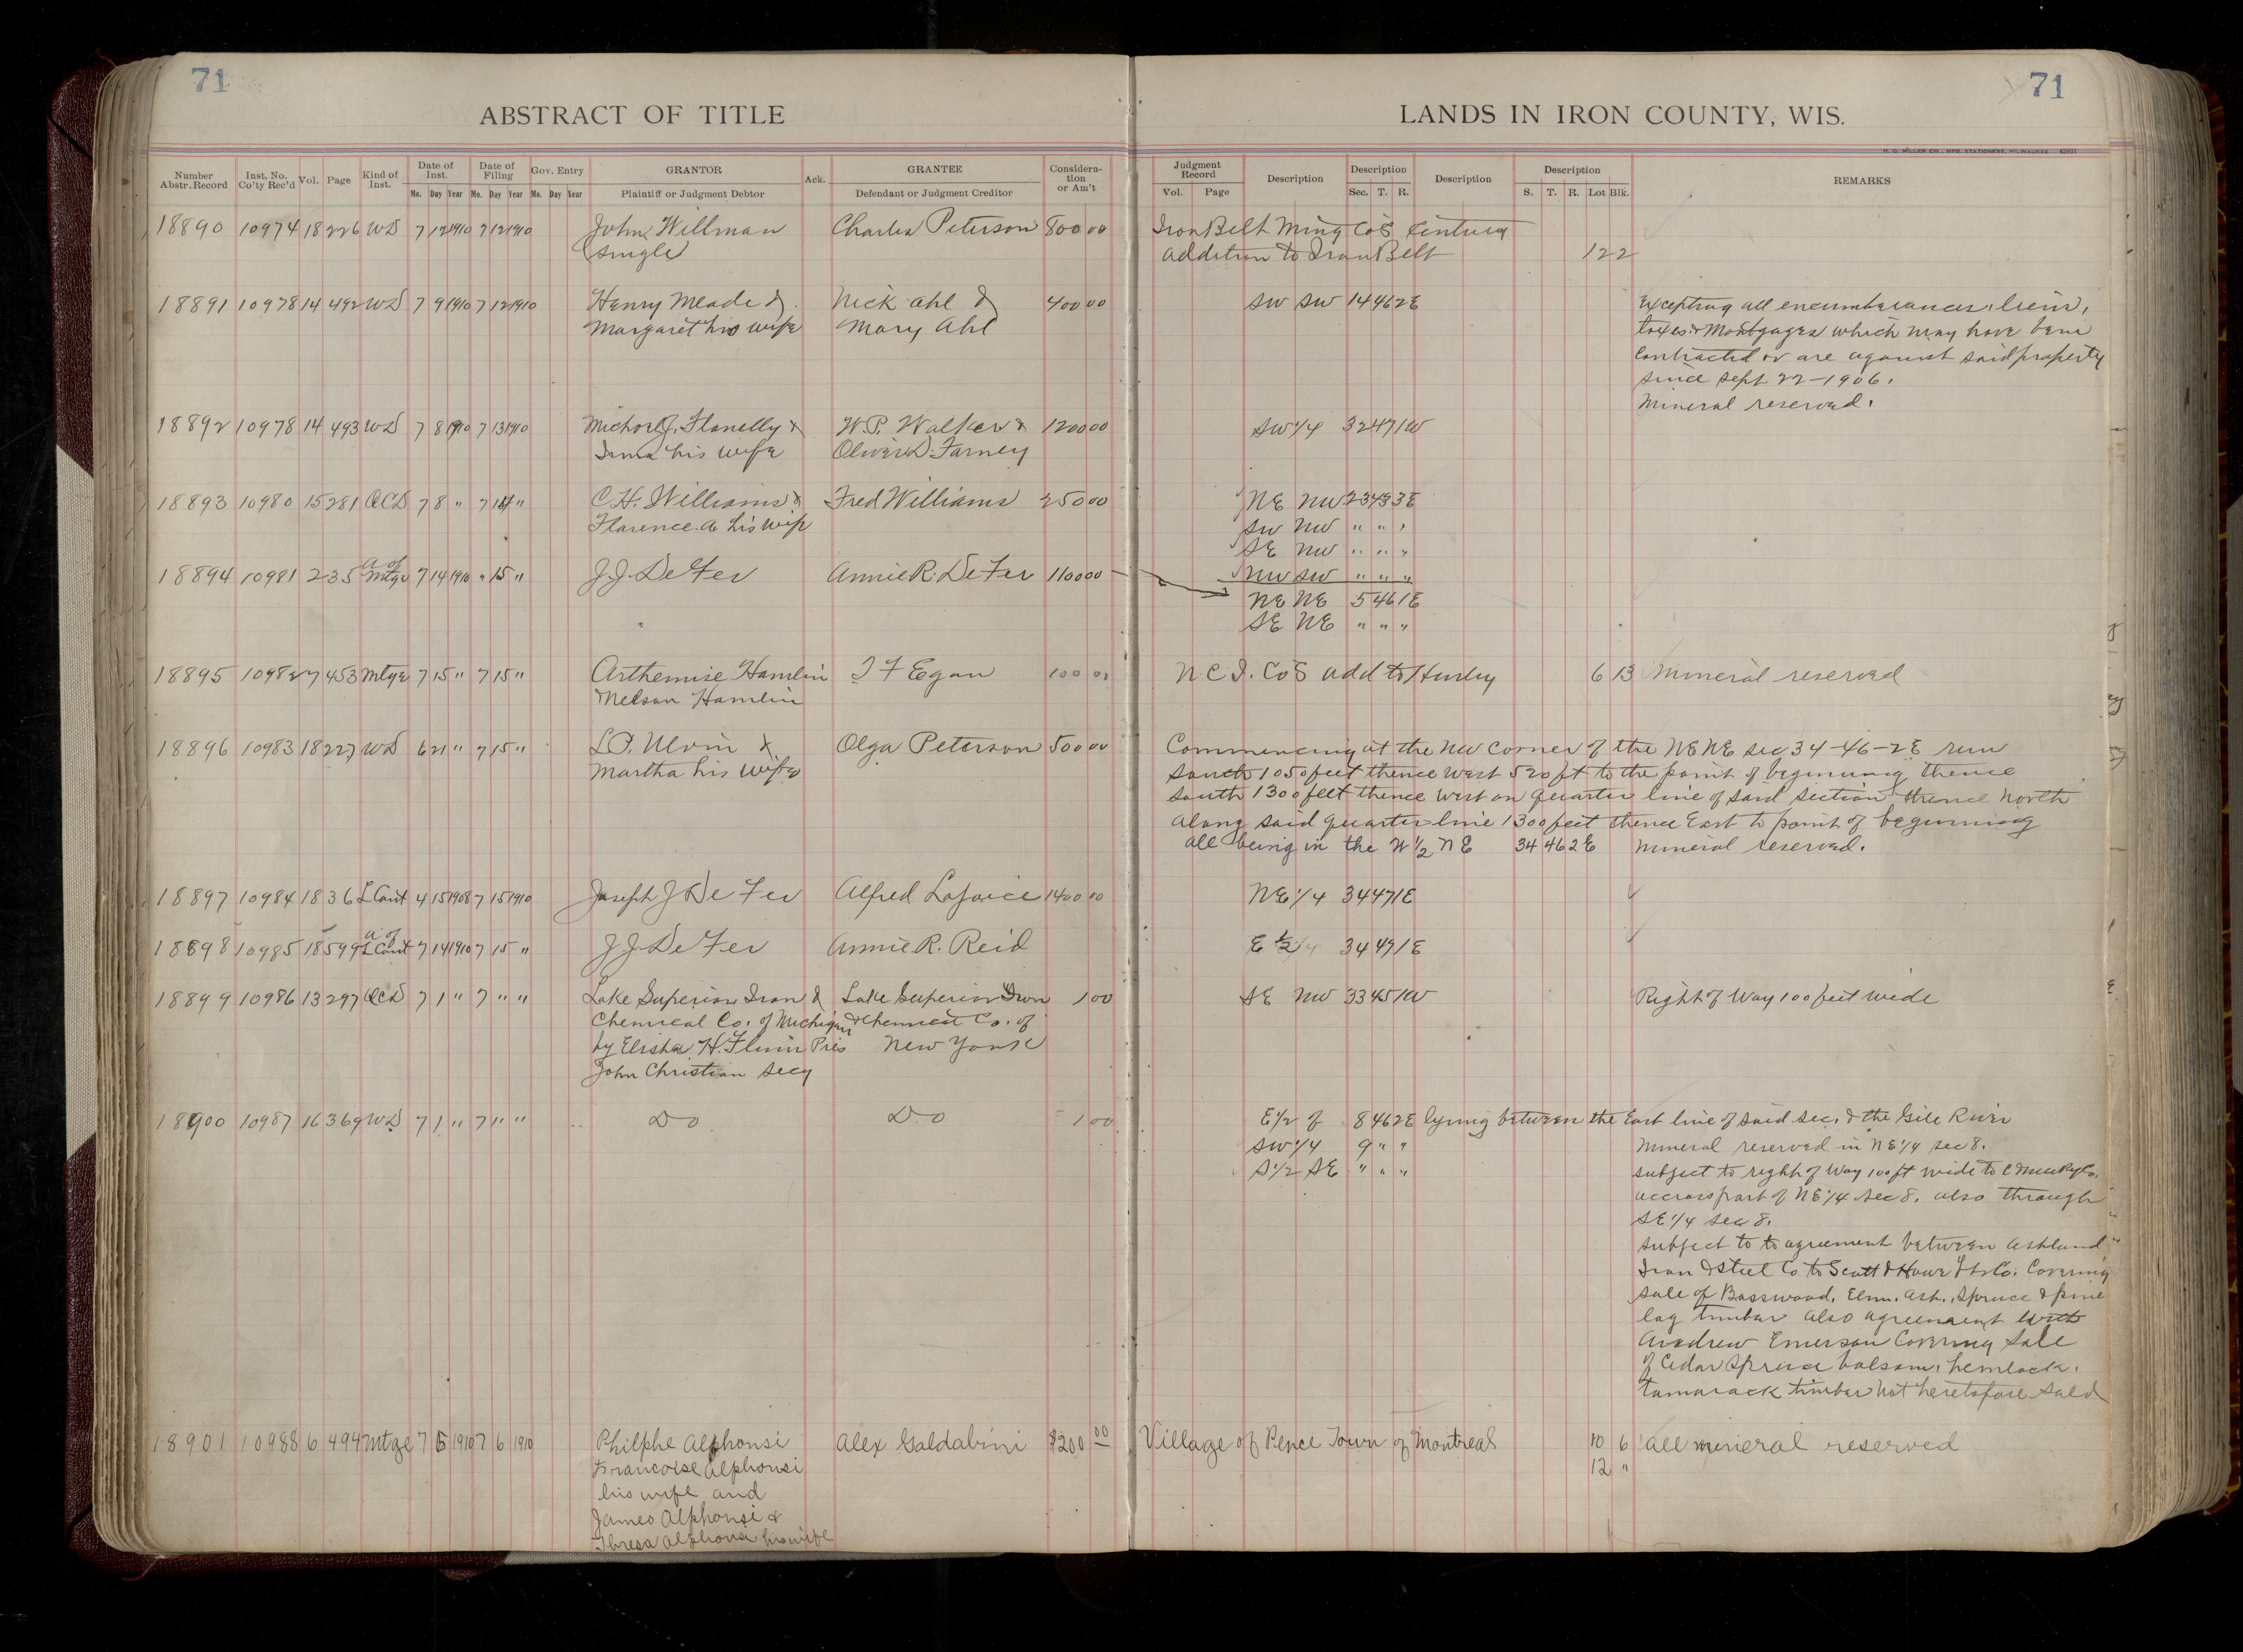 71
71
ABSTRACT OF TITLE
LANDS IN IRON COUNTY, WIS.
H. C. MILLER CO., MFG. STATIONERS, MILWAUKEE
Number Abstr. Record
Inst. No. Co'ty Rec'd
Vol.
Page
Kind of Inst.
Date of Inst.
Mo. Day Year
Date of Filing
Mo. Day Year
Gov. Entry
Mo. Day Year
GRANTOR
Plaintiff or Judgment Debtor
Ack.
GRANTEE
Defendant or Judgment Creditor
Considera-tion or Am't
Judgment Record
Vol. Page
Description
Description
Sec. T. R.
Description
Description
S. T. R. Lot Blk.
REMARKS
18890 10974 18 226 WD 7 12 1910 7 12 1910 John Willman Charles Peterson 800 00 Iron Belt Ming Co's
single addition to Iron Belt 12 2
18891 10978 14 492 WD 7 9 1910 7 12 1910 Henry Meade & Nick Ahl & 400 00 SW SW 14 46 2E Excepting all encumberances, liens,
Margaret his wife Mary Ahl taxes & Mortgages which may have been
Contracted or are against said property
since Sept 22-1906.
Mineral reserved.
18892 10978 14 493 WD 7 8 1910 7 13 1910 Flanelly & W.P. Walker & 1200 00 SW 1/4 32 47 1W
his wife Oliver D. Farney
18893 10980 15 281 QCD 7 8 " 7 14 " C.H. Williams & Fred Williams 250 00 NE NW 23 43 3E
Florence A his wife SW NW " " "
SE NW " " "
18894 10981 2 35 A of Mtge 7 14 1910 " 15 " J.J. DeFer Annie R. DeFer 1100 00 NW SW " " "
NE NE 5 46 1E
SE NE " " "
18895 10982 7 453 Mtge 7 15 " 7 15 " Arthemise Hamlin T F Egan 100 00 N C I. Co's add to Hurley 6 13 Mineral reserved
& Nelson Hamlin
18896 10983 18 227 WD 6 21 " 7 15 " & Olga Peterson 500 00 Commencing at the NW Corner of the NE NE sec 34-46-2E run
Martha his wife South 1050 feet thence West 520 ft to the point of beginning thence
south 1300 feet thence West on quarter line of said section thence North
along said quarter line 1300 feet thence East to point of beginning
all being in the W 1/2 NE 34 46 2E Mineral reserved.
18897 10984 18 36 L Cont 4 15 1908 7 15 1910 Joseph J DeFer Alfred Lajoice 1400 00 NE 1/4 34 47 1E
18898 10985 18 599 A of L Cont 7 14 1910 7 15 " J J DeFer Annie R. Reid E 1/2 34 47 1E
18899 10986 13 297 QCD 7 1 " 7 " " Lake Superior Iron & Lake Superior Iron 1 00 SE NW 33 45 1W Right of Way 100 feet wide
Chemical Co. of Michigan & Chemical Co. of
by Elisha H. Flinn Pres New York
John Christian Secy
18900 10987 16 369 WD 7 1 " 7 " " Do Do 1 00 E1/2 of 8 46 2E lying between the East line of said sec. & the Gile River
SW 1/4 9 " " Mineral reserved in NE 1/4 sec 8.
S1/2 SE " " " subject to right of Way 100 ft wide to
accross part of NE 1/4 sec 8. also through
SE 1/4 sec 8.
subject to to agreement between Ashland
Iron & Steel Co to Scott & Howe Lbr Co. Covering
sale of Basswood, Elm, Ash, Spruce & pine
log timber also agreement with
Andrew Emerson Covering Sale
of Cedar Spruce balsam, hemlock,
tamarack timber not heretofore sold
18901 10988 6 494 Mtge 7 5 1910 7 6 1910 Philphe Alphonsi Alex Galdabini $200 00 Village of Pence Town of Montreal 10 6 All mineral reserved
Francoise Alphonsi 12 "
his wife and
James Alphonsi &
Thresa Alphonsi his wife